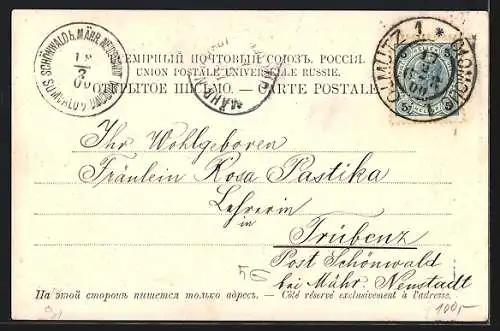 ВСЕМІРНЫЙ ПОЧТОВЫЙ СОЮЗЪ. РОССІЯ.
UNION POSTALE UNIVERSELLE RUSSIE.
ОТКРЫТОЕ ПИСЬМО. — CARTE POSTALE
SCHÖNWALD b. MÄHR. NEUSTADT
18
3
00
OLMÜTZ 1. * OLOMOUC
17
00
5
Ihr Wohlgeboren
Fräulein Rosa Pastika
Lehrerin
in
Trübenz
Post Schönwald
bei Mähr. Neustadt
На этой сторонѣ пишется только адресъ. — Côté réservé exclusivement à l'adresse.
100,-